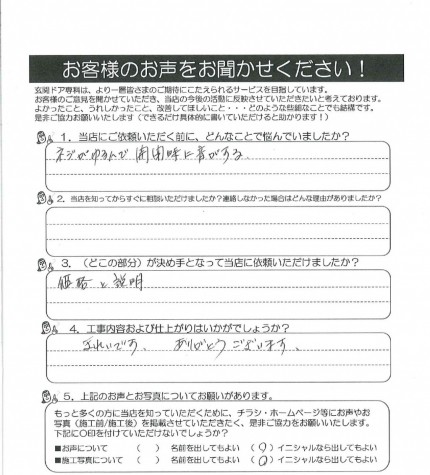 お客様のお声をお聞かせください！
玄関ドア専科は、より一層皆さまのご期待にこたえられるサービスを目指しています。
お客様のご意見を聞かせていただき、当店の今後の活動に反映させていただきたいと考えております。
よかったこと、うれしかったこと、改善してほしいこと・・・どのような些細なことでも結構です。
是非ご協力お願いいたします（できるだけ具体的に書いていただけると助かります！）
1．当店にご依頼いただく前に、どんなことで悩んでいましたか？
ネジがゆるんで 開閉時に音がする。
2．当店を知ってからすぐに相談いただけましたか？連絡しなかった場合はどんな理由がありましたか？
3．（どこの部分）が決め手となって当店に依頼いただけましたか？
価格と説明
4．工事内容および仕上がりはいかがでしょうか？
きれいです、 ありがとうございます、
5．上記のお声とお写真についてお願いがあります。
もっと多くの方に当店を知っていただくために、チラシ・ホームページ等にお声やお
写真（施工前/施工後）を掲載させていただきたく、是非ご協力をお願いいたします。
下記に〇印を付けていただけないでしょうか？
■お声について （ ） 名前を出してもよい （〇）イニシャルなら出してもよい
■施工写真について （ ） 名前を出してもよい （〇）イニシャルなら出してもよい